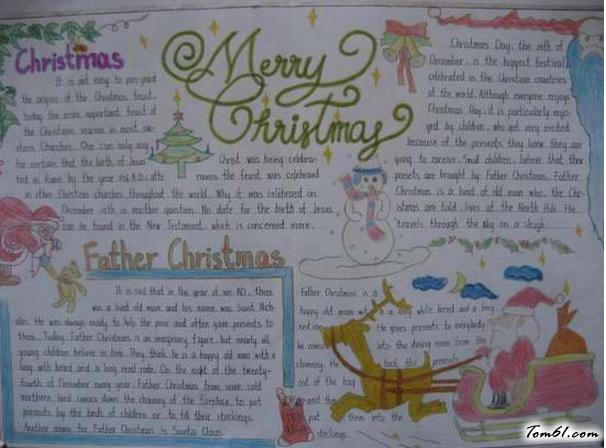 Christmas
It is not easy to pin-point
the origins of the Christmas feast
today the most important feast of
the Christian season in most we-
stern Churches. One can only say
for certain that the birth of Jesu
in Rome by the year A.D. afte
Christ was being celebra-
rwords the feast was celebrated
in other Christian churches throughout the world. Why it was celebrated on
December 25th is another question. No date for the birth of Jesus
can be found in the New Testament, which is concerned more
Merry
Christmas
Christmas Day, the 25th of
December, is the biggest festival
celebrated in the Christian countries
of the world. Although everyone enjoys
Christmas Day, it is particularly enjo-
yed by children, who get very excited
because of the presents they know they are
going to receive. Small children believe that their
presents are brought by Father Christmas. Father
Christmas is a kind of old man who, the Chr-
istmas are told, lives at the North Pole. He
travels through the sky on a sleigh
Father Christmas
It is said that in the year of there
was a kind old man and his name was Saint Nich-
olas. He was always ready to help the poor and often gave presents to
them. Today, Father Christmas is an imaginary figure, but nearly all
young children believe in him. They think he is a happy old man with a
long with beard and a long read robe. On the night of the twenty-
fourth of December every year, Father Christmas from some cold
northern land comes down the chimney of the fireplace to put
presents by the beds of children or to fill their stockings.
Another name for Father Christmas is Santa Claus.
Father Christmas is a
happy old man with a long white beard and a long
red He gives presents to everybody
he comes into the dining room from the
chimney. He took the presents
out of the bag
and the
put them into the
stockings.
Tom61.com